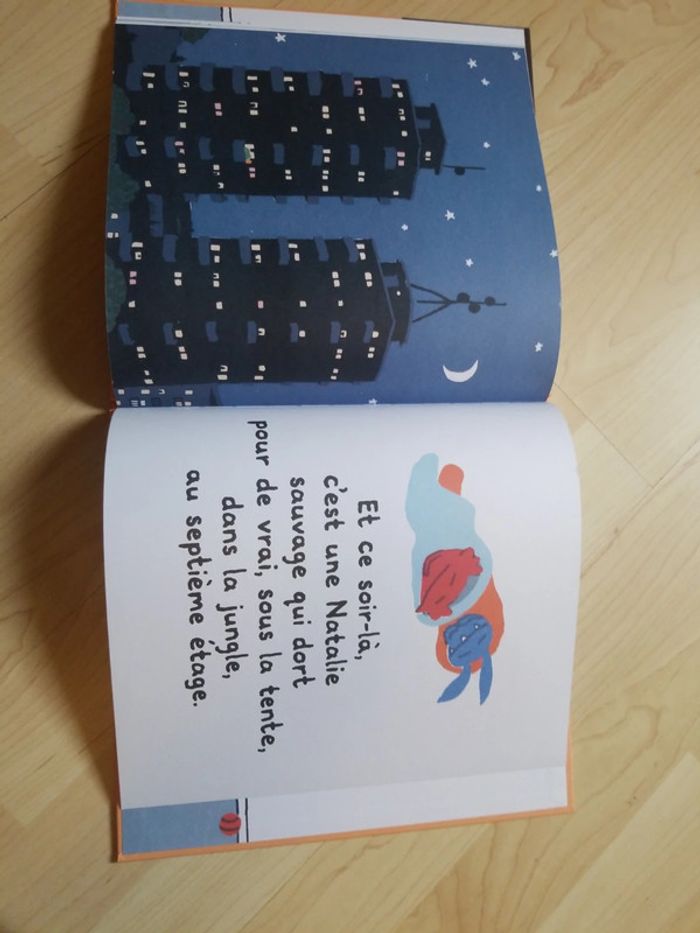 Et ce soir-là,
c'est une Natalie
sauvage qui dort
pour de vrai, sous la tente,
dans la jungle,
au septième étage.